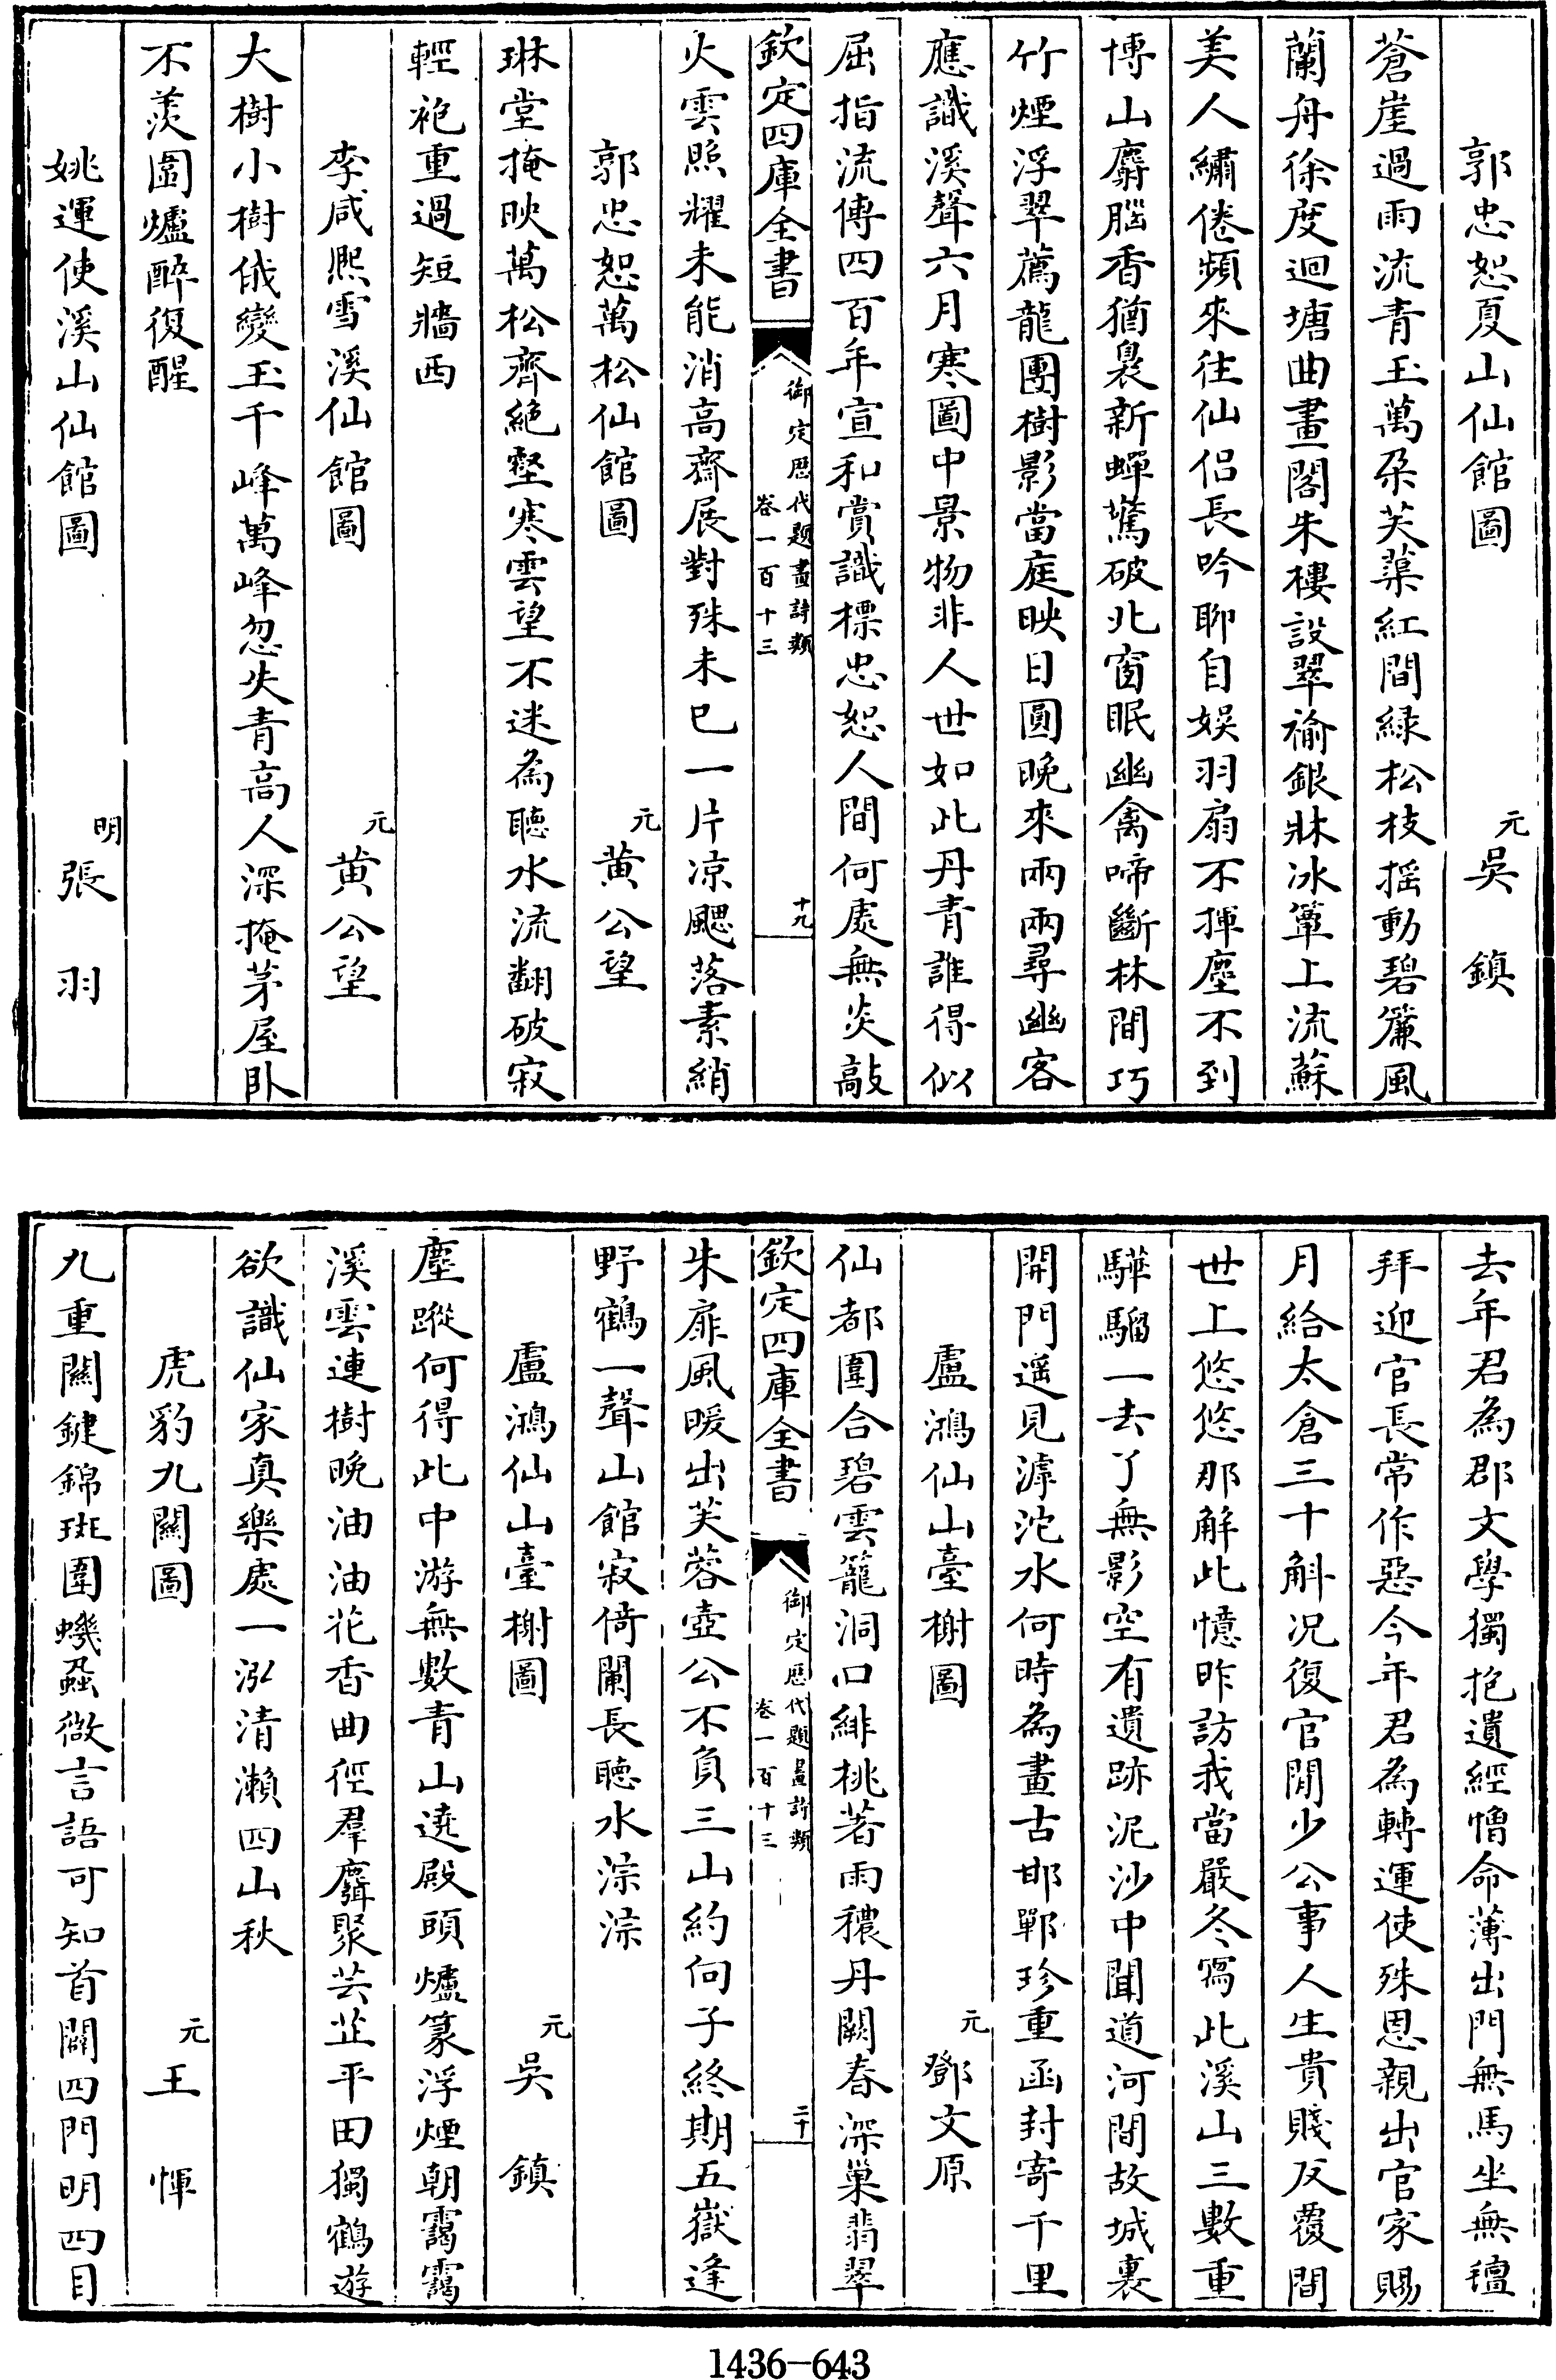 郭忠恕夏山仙館圖 元 吳鎮
蒼崖過雨流青玉萬朶芙蕖紅間緑松枝揺動碧簾風
蘭舟徐度迴塘曲畫閣朱樓設翠褕銀牀冰簟上流蘇
美人繡倦頻來徃仙侣長吟聊自娱羽扇不揮塵不到
博山麝腦香猶裊新蟬驚破北窗眠幽禽啼斷林間巧
竹煙浮翠薦龍團樹影當庭映日圓晚來兩兩尋幽客
應識溪聲六月寒圖中景物非人世如此丹青誰得似
屈指流傳四百年宣和賞識標忠恕人間何處無炎敲
欽定四庫全書 御定歴代題畫詩類 卷一百十三 十九
火雲照耀未能消高齋展對殊未已一片凉颸落素綃
郭忠恕萬松仙館圖 元 黄公望
琳堂掩映萬松齊絶壑寒雲望不迷為聽水流翻破寂
輕袍重過短牆西
李咸熙雪溪仙館圖 元 黄公望
大樹小樹俄變玉千峰萬峰忽失青高人深掩茅屋卧
不羨圍爐醉復醒
姚運使溪山仙館圖 明 張羽
去年君為郡文學獨抱遺經憎命薄出門無馬坐無氊
拜迎官長常作惡今年君為轉運使殊恩親出官家賜
月給太倉三十斛况復官閒少公事人生貴賤反覆間
世上悠悠那解此憶昨訪我當嚴冬寫此溪山三數重
驊騮一去了無影空有遺跡泥沙中聞道河間故城裏
開門遥見滹沱水何時為畫古邯鄲珍重函封寄千里
盧鴻仙山臺榭圖 元 鄧文原
仙都圍合碧雲籠洞口緋桃著雨穠丹闕春深巢翡翠
欽定四庫全書 御定歴代題畫詩類 卷一百十三 二十
朱扉風暖出芙蓉壺公不負三山約向子終期五嶽逢
野鶴一聲山館寂倚闌長聽水淙淙
盧鴻仙山臺榭圖 元 吳鎮
塵蹤何得此中游無數青山遶殿頭爐篆浮煙朝靄靄
溪雲連樹晚油油花香曲徑羣麕聚芸芷平田獨鶴遊
欲識仙家真樂處一泓清瀨四山秋
虎豹九關圖 元 王惲
九重關鍵錦斑圍蟣蝨微言語可知首闢四門明四目
1436-643